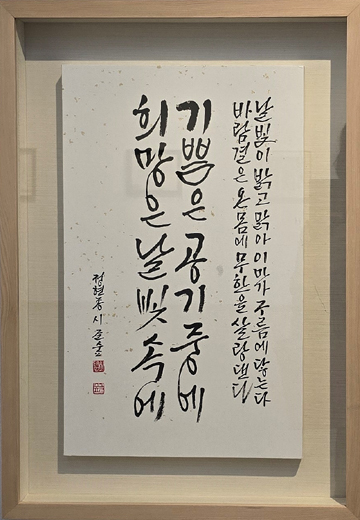 날빛이 밝고 맑아 이마가 구름에 닿는다
바람결은 온몸에 무한을 살랑댄다
기쁨은 공기 중에
희망은 날빛 속에
정현종 시